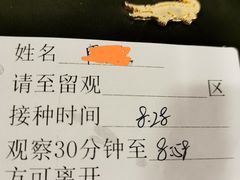 姓名
请至留观 区
接种时间 8:28
观察30分钟至 8:59
方可离开